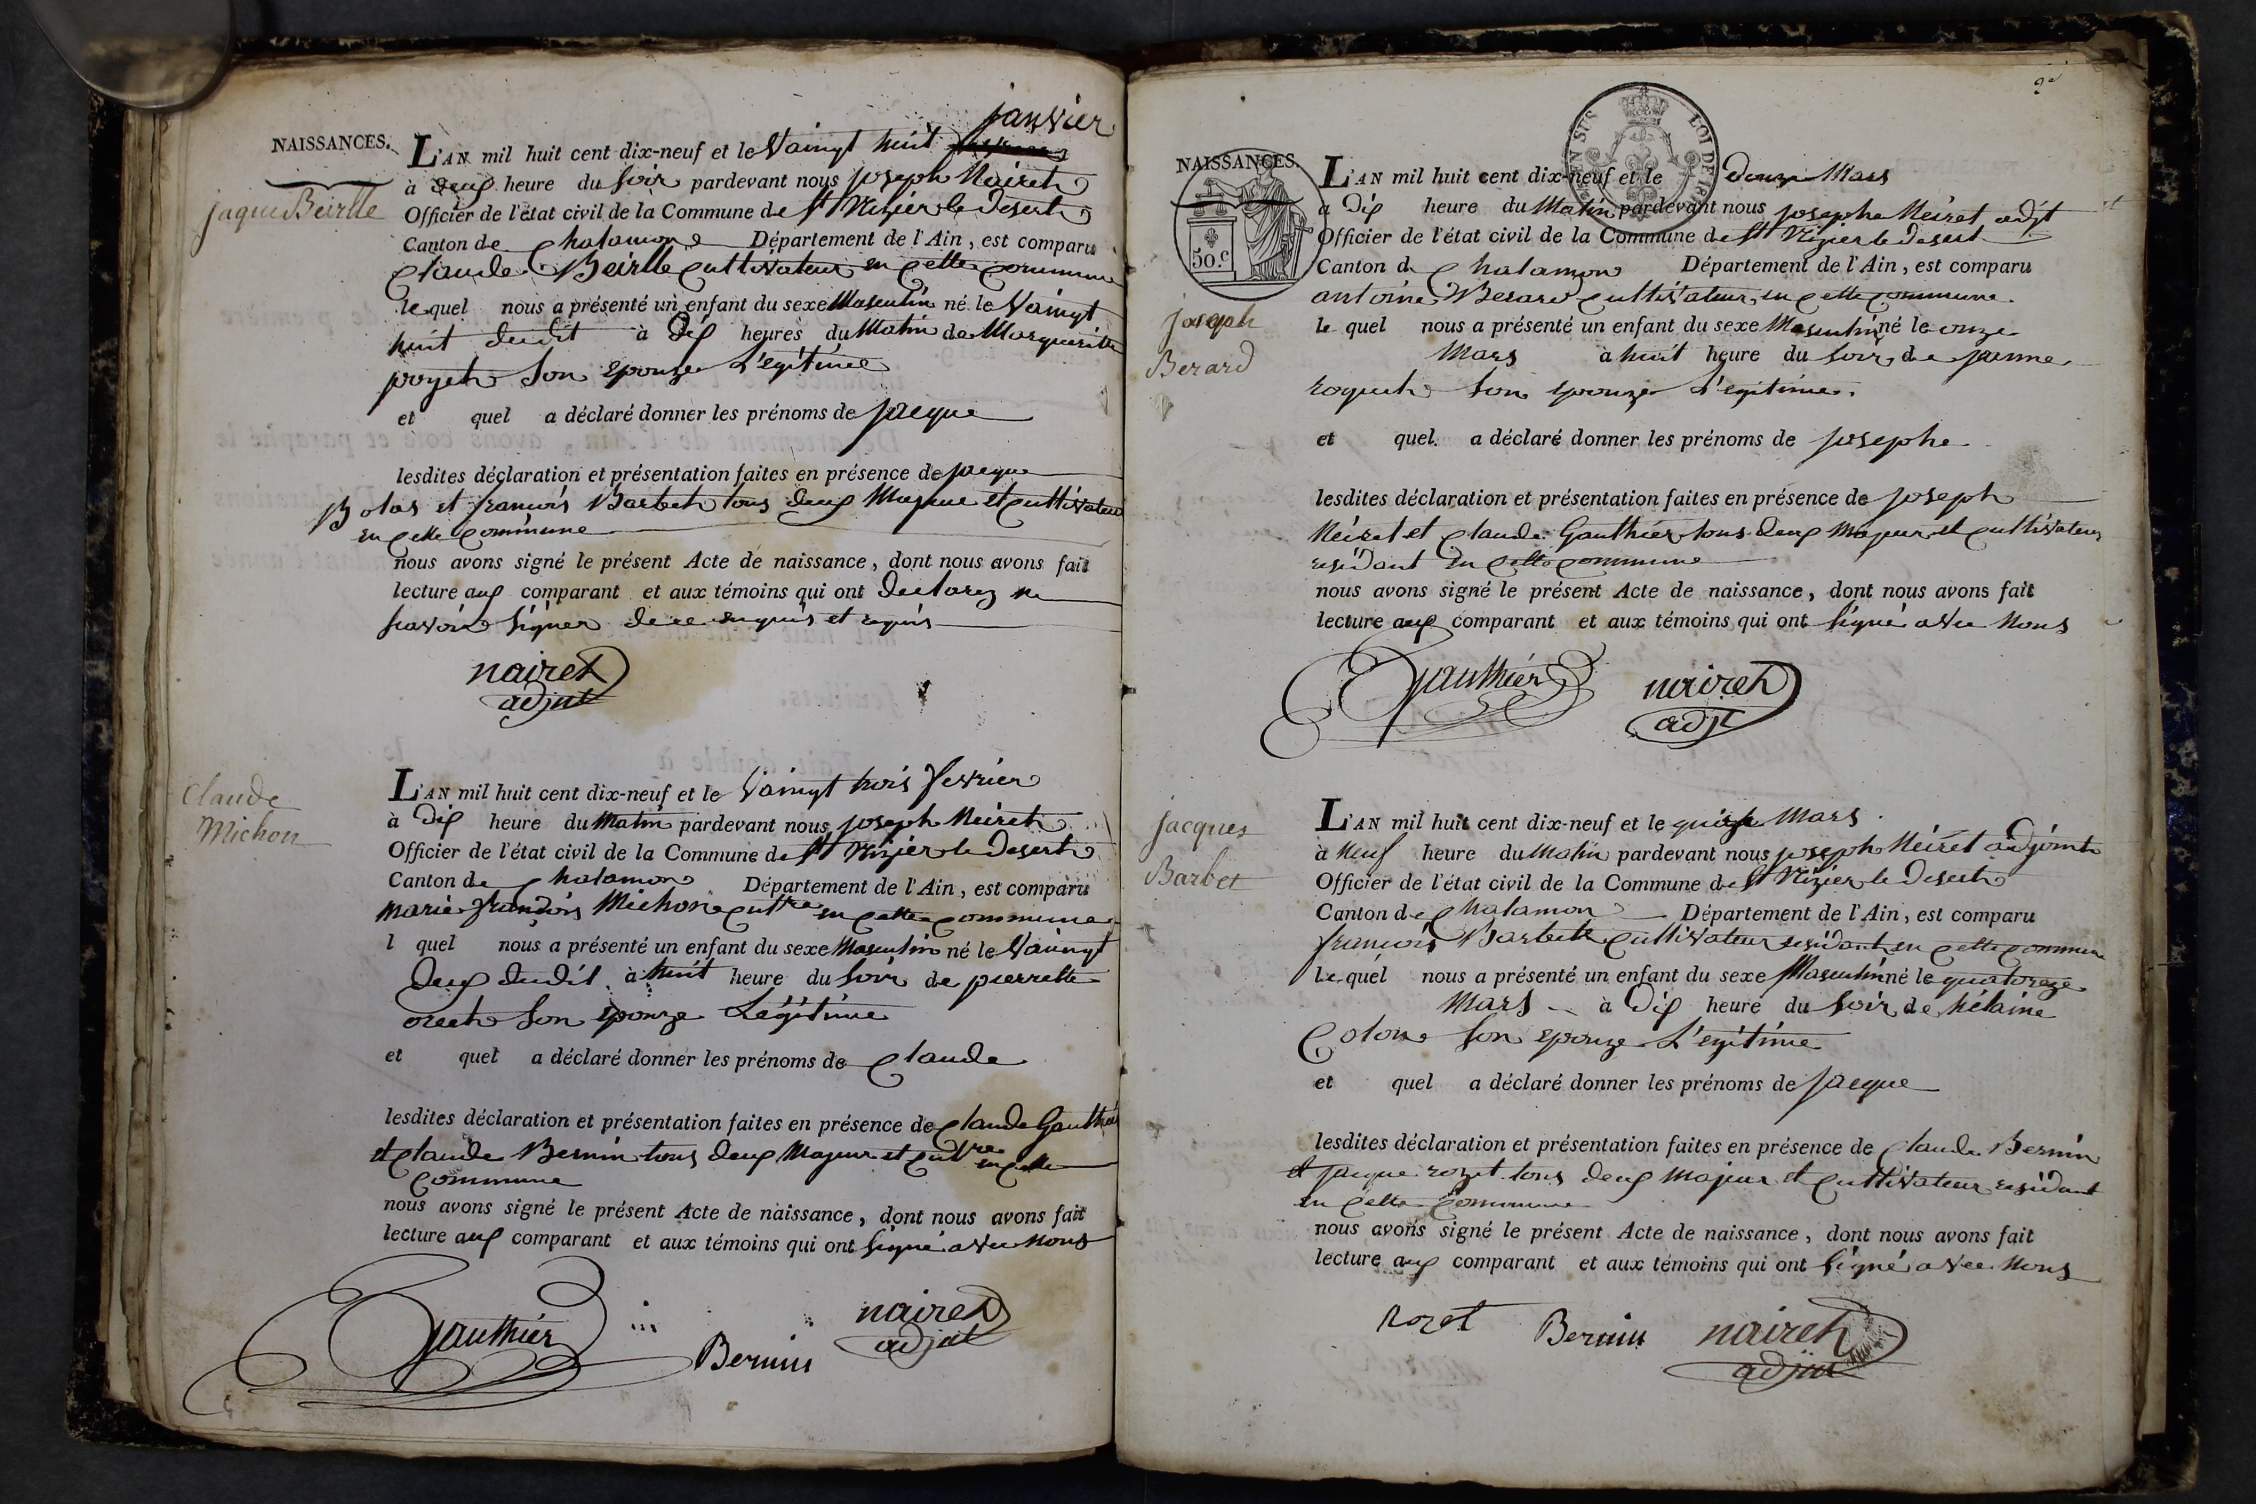 NAISSANCES.
jaque Beirlle
janvier
L'AN mil huit cent dix-neuf et le Vaingt huit
à deux heure du soir pardevant nous joseph Neiret
Officier de l'état civil de la Commune de St Nizier le desert
Canton de Chalamon Département de l'Ain, est comparu
Claude Beirlle cultivateur en cette commune
le quel nous a présenté un enfant du sexe Masculin né le Vaingt
huit dudit à dix heures du Matin de Margueritte
poyet son epouze Légitime
et quel a déclaré donner les prénoms de jacque
lesdites déclaration et présentation faites en présence de jacque
Bolas et francois Barbet tous deux Majeur et cultivateur
en cette commune
nous avons signé le présent Acte de naissance, dont nous avons fait
lecture aux comparant et aux témoins qui ont declarez ne
savoir signer de ce enquis et requis
nairet
adjut
Claude
Michon
L'AN mil huit cent dix-neuf et le Vaingt trois fevrier
à dix heure du Matin pardevant nous joseph Neiret
Officier de l'état civil de la Commune de St Nizier le desert
Canton de Chalamon Département de l'Ain, est comparu
Marie françois Michon cultre en cette commune
l quel nous a présenté un enfant du sexe Masculin né le Vaingt
deux dudit à huit heure du soir de pierrette
son epouze Légitime
et quel a déclaré donner les prénoms de Claude
lesdites déclaration et présentation faites en présence de Claude Gauthier
et Claude Bernin tous deux Majeur et cultre en cette
commune
nous avons signé le présent Acte de naissance, dont nous avons fait
lecture aux comparant et aux témoins qui ont signé avec nous
Gauthier
Bernin
nairet
adjut
2e
SUS
LOI DE
NAISSANCES.
50.c
joseph
Berard
L'AN mil huit cent dix-neuf et le douze Mars
a dix heure du Matin pardevant nous josephe Neiret adjt
Officier de l'état civil de la Commune de St Nizier le desert
Canton d Chalamon Département de l'Ain, est comparu
antoine Berard cultivateur en cette commune
le quel nous a présenté un enfant du sexe Masculin né le onze
Mars à huit heure du soir de jeanne
roquet son epouze Légitime
et quel a déclaré donner les prénoms de josephe
lesdites déclaration et présentation faites en présence de joseph
Neiret et Claude Gauthier tous deux Majeur et cultivateur
residant en cette commune
nous avons signé le présent Acte de naissance, dont nous avons fait
lecture aux comparant et aux témoins qui ont signé avec nous
Gauthier
nairet
adjt
jacques
Barbet
L'AN mil huit cent dix-neuf et le quinze Mars
à neuf heure du Matin pardevant nous joseph Neiret adjoint
Officier de l'état civil de la Commune de St Nizier le desert
Canton de Chalamon Département de l'Ain, est comparu
francois Barbet cultivateur residant en cette commune
le quel nous a présenté un enfant du sexe Masculin né le quatorze
Mars à dix heure du soir de hélaine
Colon son epouze Légitime
et quel a déclaré donner les prénoms de jacque
lesdites déclaration et présentation faites en présence de Claude Bernin
et jacque rozet tous deux majeur et cultivateur residant
en cette commune
nous avons signé le présent Acte de naissance, dont nous avons fait
lecture aux comparant et aux témoins qui ont signé avec nous
Rozet
Bernin
nairet
adjut